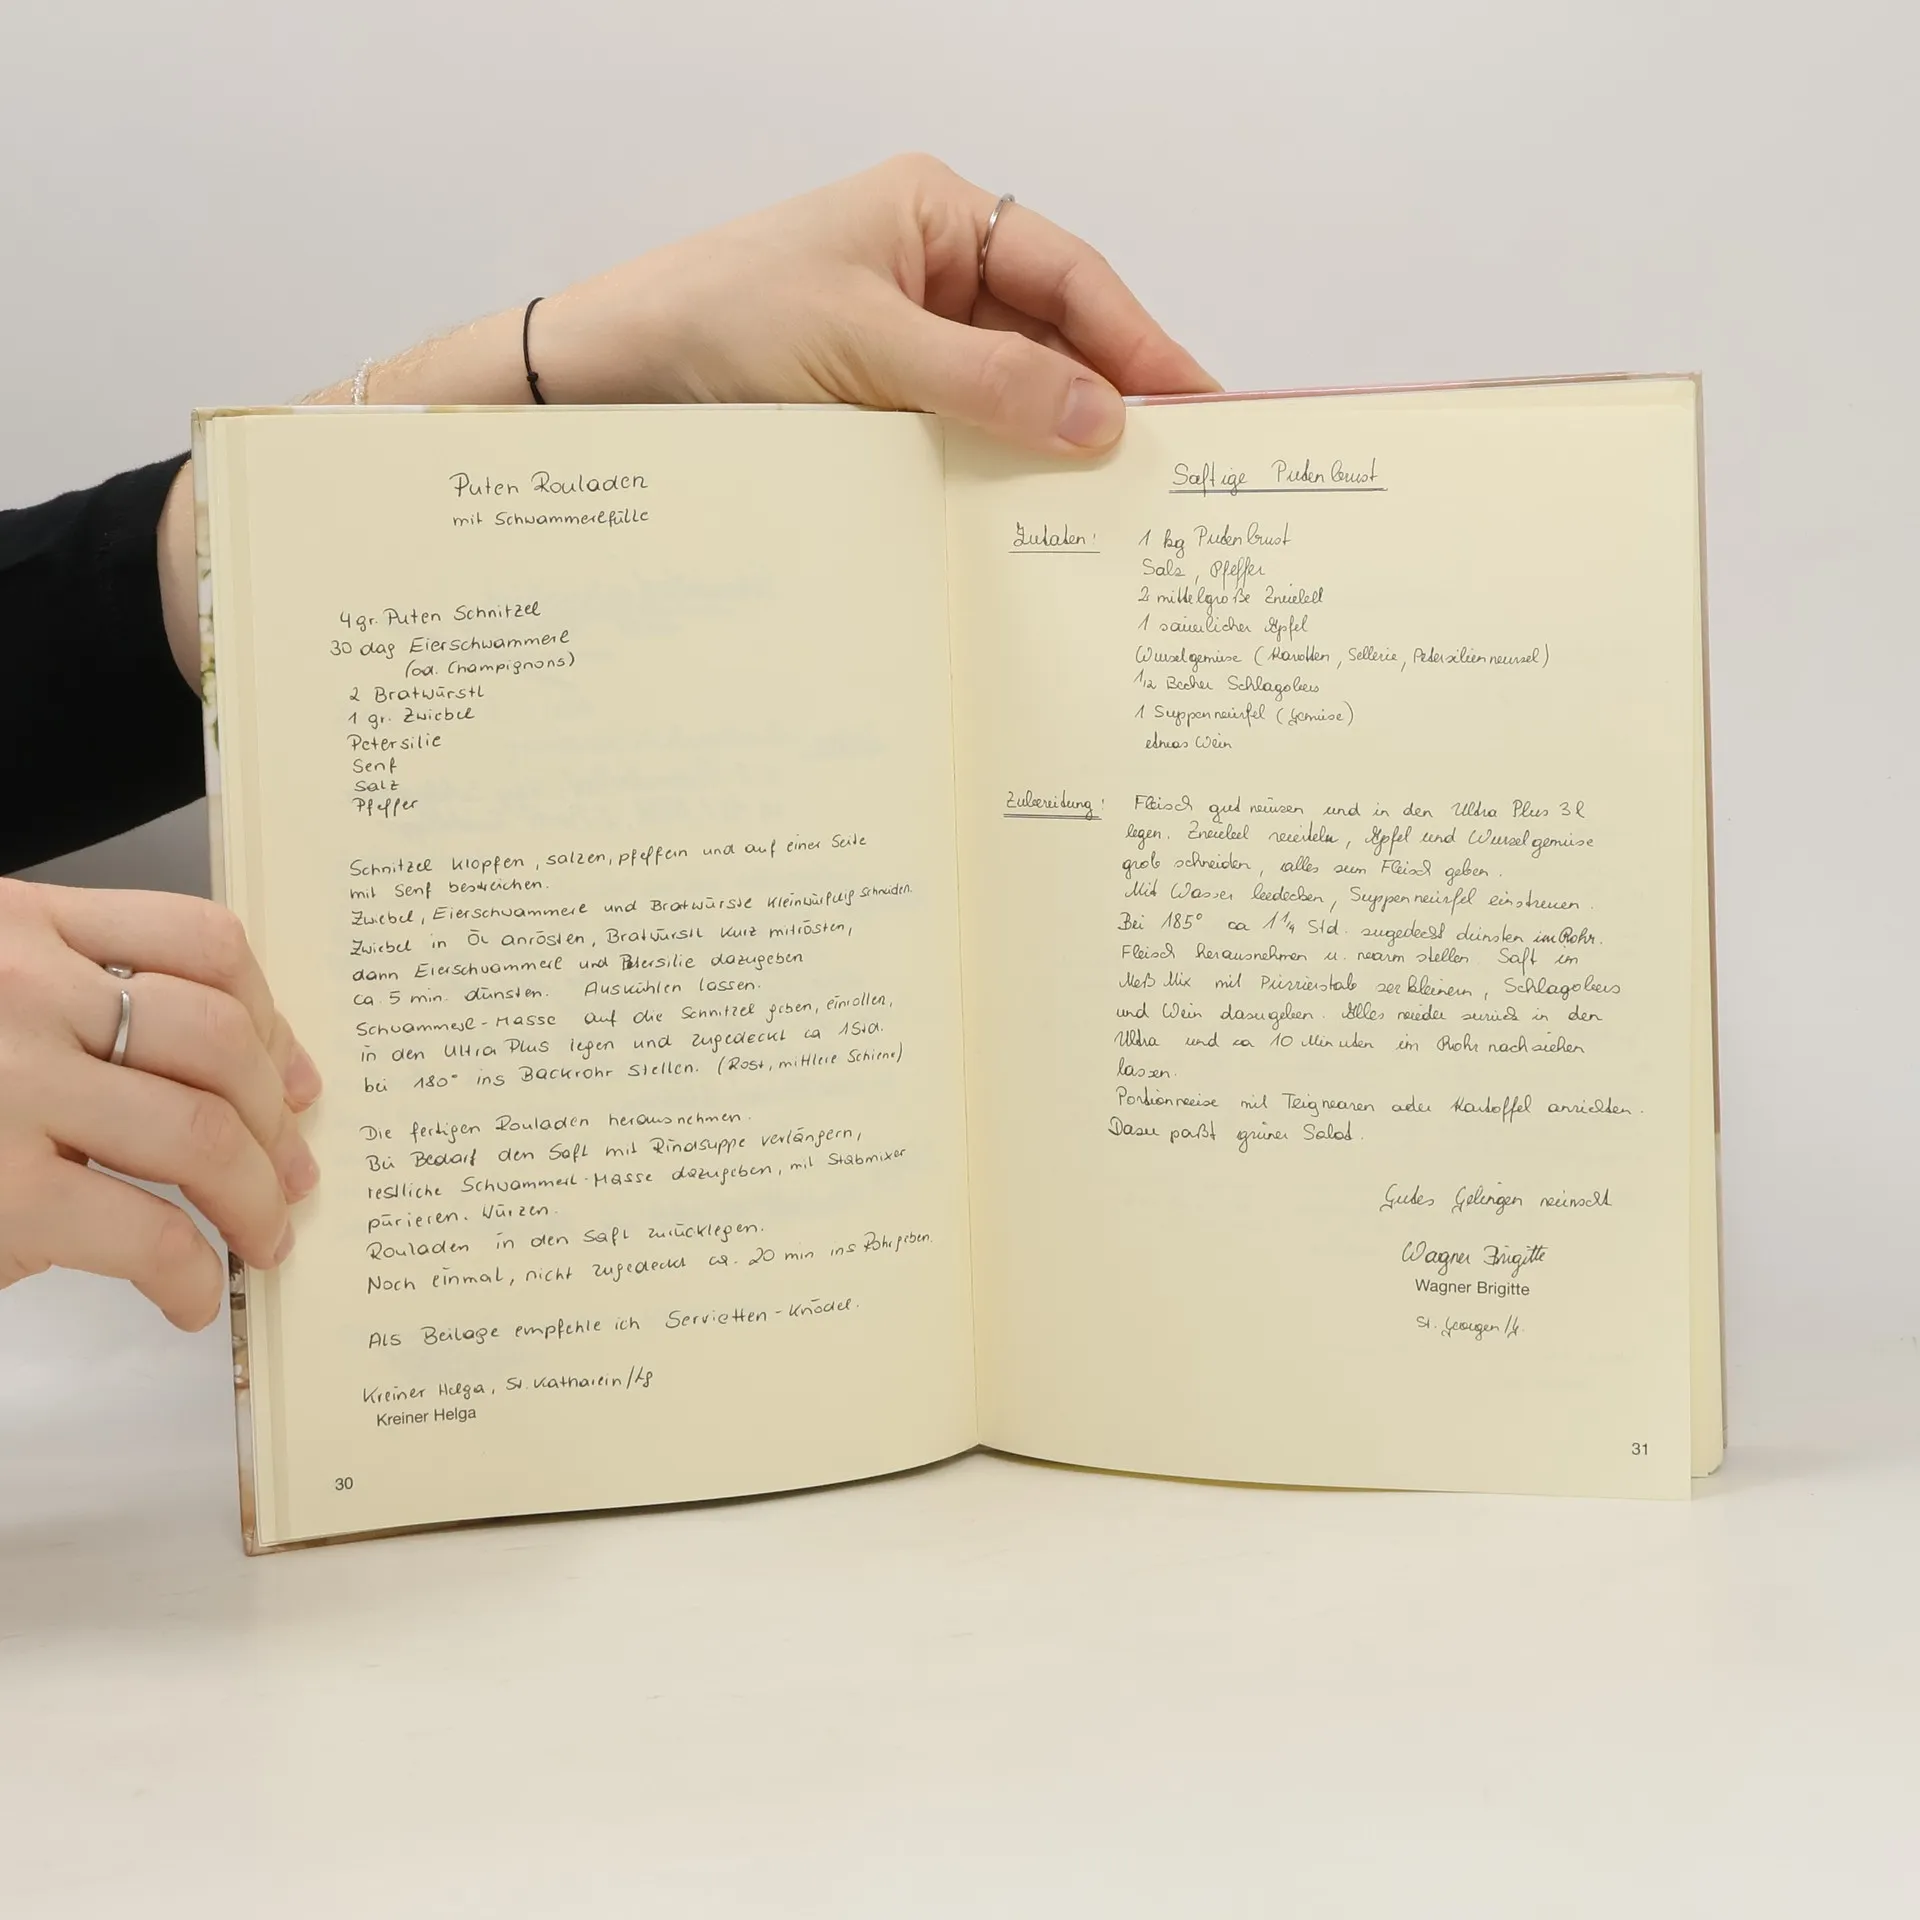 Puten Rouladen
mit Schwammerlfülle
4 gr. Puten Schnitzel
30 dag Eierschwammerl
(od. Champignons)
2 Bratwürstl
1 gr. Zwiebel
Petersilie
Senf
Salz
Pfeffer
Schnitzel klopfen, salzen, pfeffern und auf einer Seite
mit Senf bestreichen.
Zwiebel, Eierschwammerl und Bratwürste kleinwürfelig schneiden.
Zwiebel in Öl anrösten, Bratwürstl kurz mitrösten,
dann Eierschwammerl und Petersilie dazugeben
ca. 5 min. dünsten. Auskühlen lassen.
Schwammerl-Masse auf die Schnitzel geben, einrollen,
in den Ultra Plus legen und zugedeckt ca 1 Std.
bei 180° ins Backrohr stellen. (Rost, mittlere Schiene)
Die fertigen Rouladen herausnehmen.
Bei Bedarf den Saft mit Rindsuppe verlängern,
restliche Schwammerl-Masse dazugeben, mit Stabmixer
pürieren. Würzen.
Rouladen in den Saft zurücklegen.
Noch einmal, nicht zugedeckt ca. 20 min ins Rohr geben.
Als Beilage empfehle ich Servietten-Knödel.
Kreiner Helga, St. Katharein/Lg
Kreiner Helga
30
Saftige Putenbrust
Zutaten:
1 kg Putenbrust
Salz, Pfeffer
2 mittelgroße Zwiebell
1 säuerlicher Apfel
Wurzelgemüse (Karotten, Sellerie, Petersilienwurzel)
1/2 Becher Schlagobers
1 Suppenwürfel (Gemüse)
etwas Wein
Zubereitung:
Fleisch gut würzen und in den Ultra Plus 3 l
legen. Zwiebel vierteln, Apfel und Wurzelgemüse
grob schneiden, alles zum Fleisch geben.
Mit Wasser bedecken, Suppenwürfel einstreuen.
Bei 185° ca 1 1/4 Std. zugedeckt dünsten im Rohr.
Fleisch herausnehmen u. warm stellen Saft im
Meß Mix mit Pürrierstab zerkleinern, Schlagobers
und Wein dazugeben. Alles wieder zurück in den
Ultra und ca 10 Minuten im Rohr nachziehen
lassen.
Portionweise mit Teigwaren oder Kartoffel anrichten.
Dazu paßt grüner Salat.
Gutes Gelingen wünscht
Wagner Brigitte
Wagner Brigitte
St. Georgen/
31